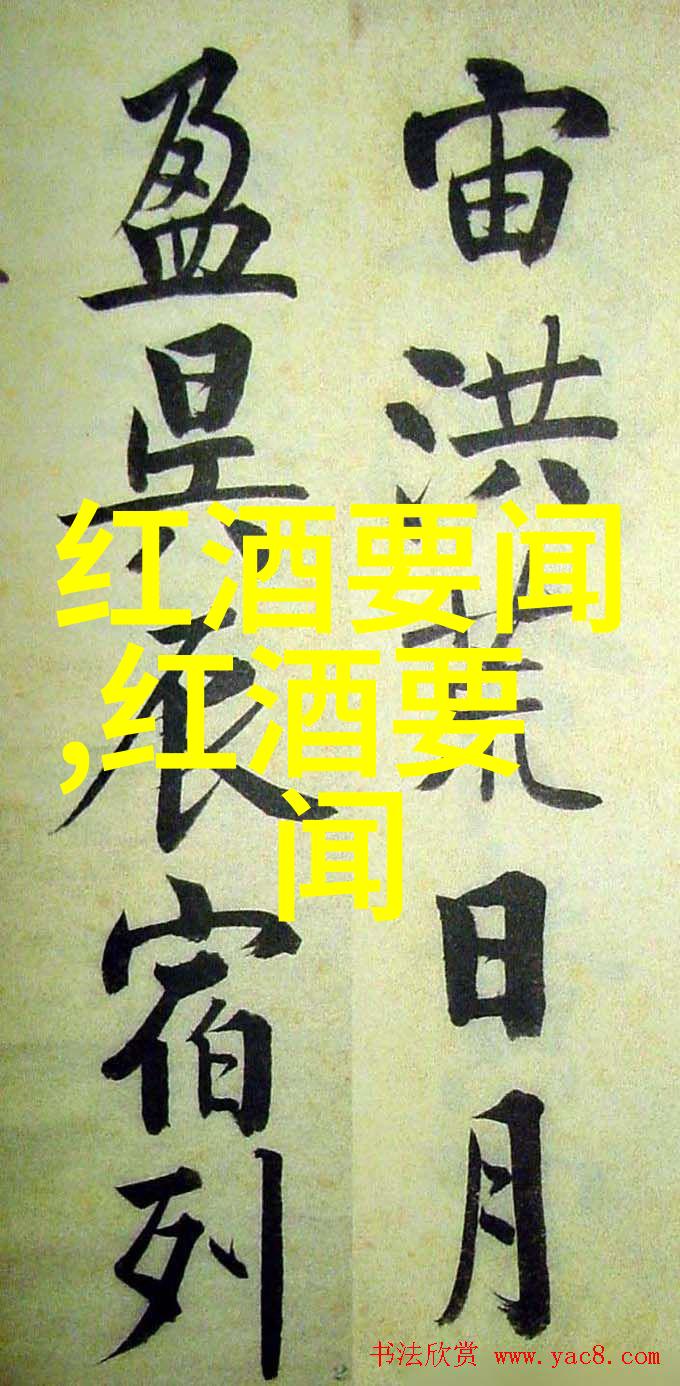 宙洪荒日月
盈昃辰宿列
红酒要闻
,红酒要
闻
书法欣赏 www.yac8.com